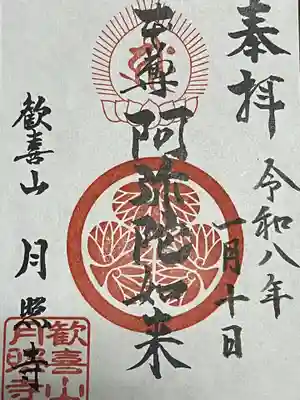 奉拝
令和八年
一月十日
本尊
阿弥陀如来
歓喜山
月照寺
歓喜山
月照寺